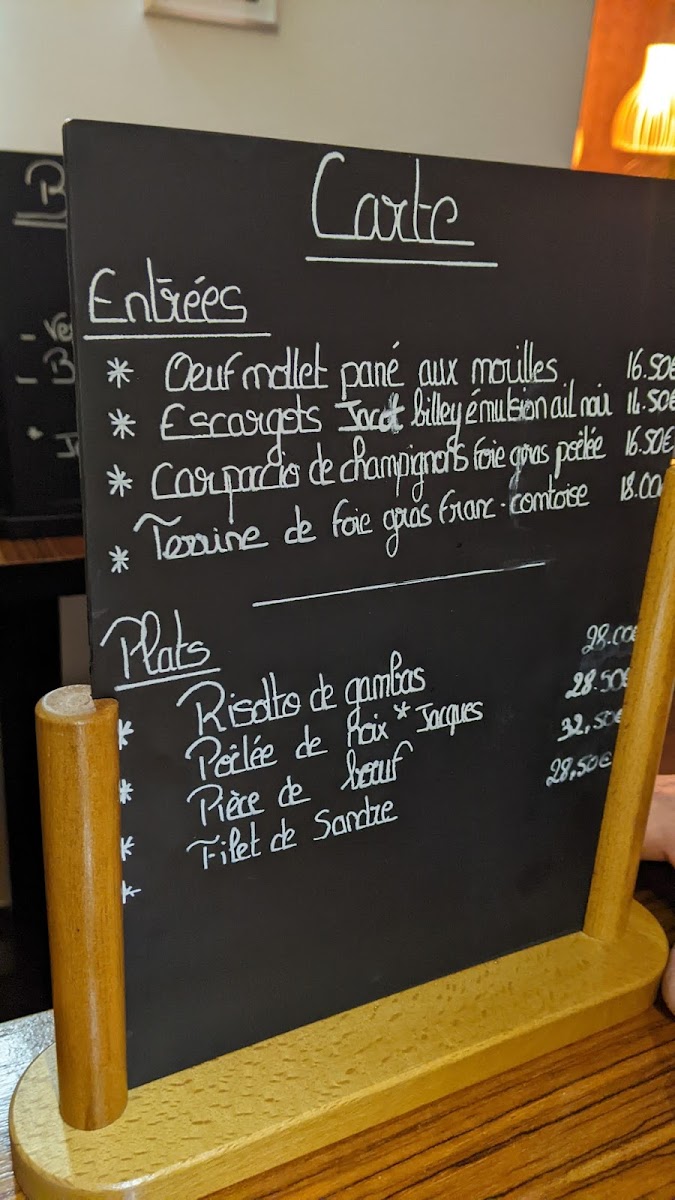 Carte
Entrées
* Oeuf mollet pané aux morilles 16.50€
* Escargots Jacot billey émulsion ail noir 14.50€
* Carpaccio de champignons foie gras poêlée 16.50€
* Terrine de foie gras Franc-comtoise 18.00
Plats
* Risotto de gambas 28.00€
* Poêlée de Noix * Jacques 28.50€
* Pièce de boeuf 32.50€
* Filet de Sandre 28.50€